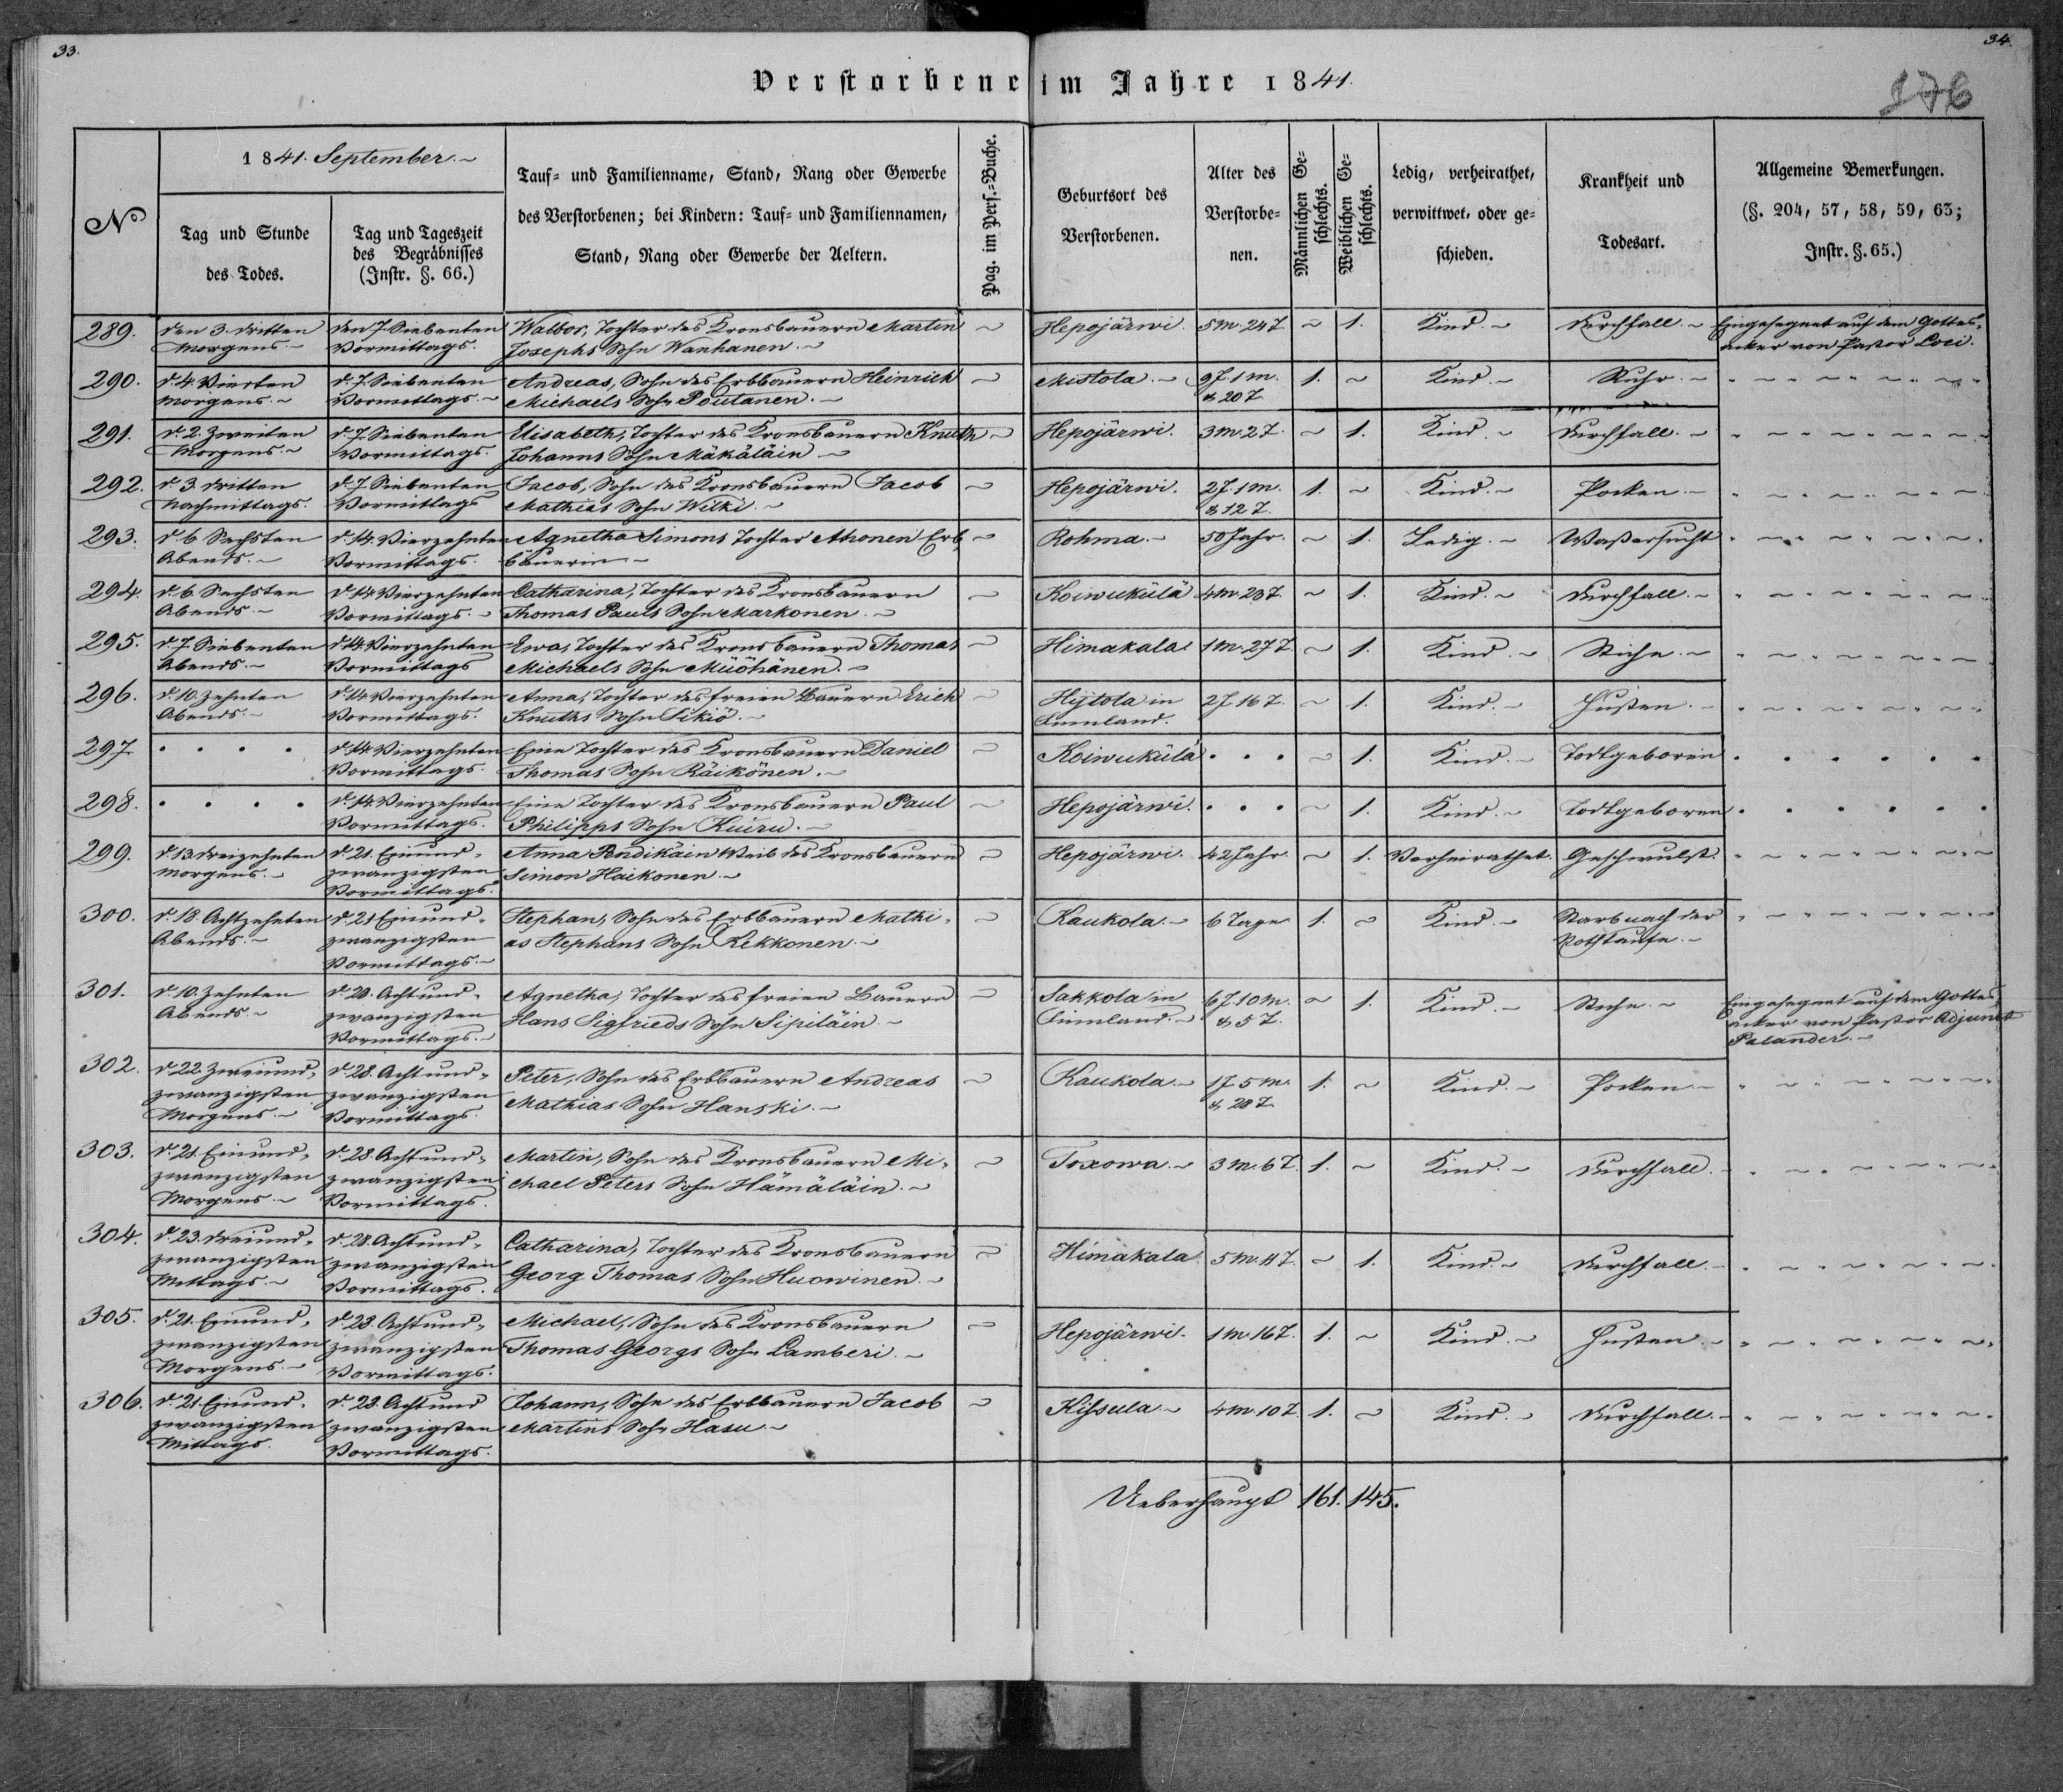 33.
34.
176
Verstorbene im Jahre 1841.
No
1841. September.
Tag und Stunde
des Todes.
Tag und Tageszeit
des Begräbnisses
(Instr. §. 66.)
Tauf= und Familienname, Stand, Rang oder Gewerbe
des Verstorbenen; bei Kindern: Tauf= und Familiennamen,
Stand, Rang oder Gewerbe der Aeltern.
Pag. im Pers.=Buche.
Geburtsort des
Verstorbenen.
Alter des
Verstorbe=
nen.
Männlichen Ge=
schlechts.
Weiblichen Ge=
schlechts.
Ledig, verheirathet,
verwittwet, oder ge=
schieden.
Krankheit und
Todesart.
Allgemeine Bemerkungen.
(§. 204, 57, 58, 59, 63;
Instr. §. 65.)
289. den 3. dritten den 7. Siebenten Walbor, Tochter des Kronsbauern Martin ~ Hepojärwi. 5 M. 24 T. ~ 1. Kind. Durchfall. Eingesegnet auf dem Gottes=
Morgens. Vormittags. Josephs Sohn Wanhanen. acker von Pastor Loci.
290. d. 4. Vierten d. 7. Siebenten Andreas, Sohn des Erbbauern Heinrich ~ Mistola. 9 J. 1 M. 1. ~ Kind. Ruhr.
Morgens. Vormittags. Michaels Sohn Poutanen. & 20 T.
291. d. 2. Zweiten d. 7. Siebenten Elisabeth, Tochter des Kronsbauern Knuth ~ Hepojärwi. 3 M. 2 T. ~ 1. Kind. Durchfall.
Morgens. Vormittags. Johanns Sohn Mäkäläin
292. d. 3. dritten d. 7. Siebenten Jacob, Sohn des Kronsbauern Jacob ~ Hepojärwi. 2 J. 1 M. 1. ~ Kind. Pocken.
Nachmittags. Vormittags Mathias Sohn Witki. & 12 T.
293. d. 6 Sechsten d. 14. Vierzehnten Agnetha Simons Tochter Ahonen Erb= ~ Rohma. 50 Jahr. ~ 1. Ledig. Waßersucht
Abends. Vormittags. bäuerin
294. d. 6 Sechsten d. 14. Vierzehnten Catharina, Tochter des Kronsbauern ~ Koiwukülä 4 M. 28 T. ~ 1. Kind. Durchfall.
Abends. Vormittags. Thomas Pauls Sohn Markonen.
295. d. 7. Siebenten d. 14. Vierzehnten Ewa, Tochter des Kronsbauern Thomas ~ Himakala 1 M. 27 T. ~ 1. Kind. Stiche.
Abends. Vormittags Michaels Sohn Müöhänen.
296. d. 10. Zehnten d. 14 Vierzehnten Anna, Tochter des freien Bauern Erich ~ Hijtola in 2 J. 16 T. ~ 1. Kind. Husten.
Abends. Vormittags. Knuths Sohn Sikiö. Finnland.
297. . . . . d. 14 Vierzehnten Eine Tochter des Kronsbauern Daniel ~ Koiwukülä . . . ~ 1. Kind. Todtgeboren . . . . . .
Vormittags. Thomas Sohn Räikönen.
298. . . . . d. 14. Vierzehnten Eine Tochter des Kronsbauern Paul ~ Hepojärwi. . . . ~ 1. Kind. Todtgeboren . . . . . .
Vormittags. Philipps Sohn Kuiru.
299. d. 13. dreizehnten d. 21. Einund= Anna Pendikäin Weib des Kronsbauern ~ Hepojärwi. 42 Jahr. ~ 1. Verheirathet. Geschwulst.
Morgens. zwanzigsten Simon Haikonen.
Vormittags.
300. d. 18. Achtzehnten d. 21 Einund= Stephan, Sohn des Erbbauern Mathi= ~ Kaukola. 6 Tage 1. ~ Kind. Starb nach der
Abends. zwanzigsten as Stephans Sohn Kekkonen. Nothtaufe.
Vormittags.
301. d. 10. Zehnten d. 28. Achtund= Agnetha, Tochter des freien Bauern ~ Sakkola in 6 J. 10 M. ~ 1. Kind. Stiche. Eingesegnet auf dem Gottes=
Abends. zwanzigsten Hans Sigfrieds Sohn Sipiläin. Finnland. & 5 T. acker von Pastor Adjunct
Vormittags. Palander.
302. d. 22. Zweiund= d. 28. Achtund= Peter, Sohn des Erbbauern Andreas ~ Kaukola. 1 J. 5 M. 1. ~ Kind. Pocken.
zwanzigsten zwanzigsten Mathias Sohn Hanski. & 28 T.
Morgens. Vormittags.
303. d. 21. Einund= d. 28. Achtund= Martin, Sohn des Kronsbauern Mi= ~ Toxowa. 3 M. 6 T. 1. ~ Kind. Durchfall.
zwanzigsten zwanzigsten chael Peters Sohn Hämäläin.
Morgens. Vormittags.
304. d. 23. dreiund= d. 28. Achtund= Catharina, Tochter des Kronsbauern ~ Himakala. 5 M. 4 T. ~ 1. Kind. Durchfall.
zwanzigsten zwanzigsten Georg Thomas Sohn Huowinen.
Mittags. Vormittags.
305. d. 21. Einund= d. 28. Achtund= Michael, Sohn des Kronsbauern ~ Hepojärwi. 1 M. 16 T. 1. ~ Kind. Husten.
zwanzigsten zwanzigsten Thomas Georgs Sohn Lamberi.
Morgens. Vormittags.
306. d. 21. Einund= d. 28. Achtund Johann, Sohn des Erbbauern Jacob ~ Kissula. 4 M. 10 T. 1. ~ Kind. Durchfall.
zwanzigsten zwanzigsten Martins Sohn Hasu.
Mittags. Vormittags.
Ueberhaupt 161. 145.